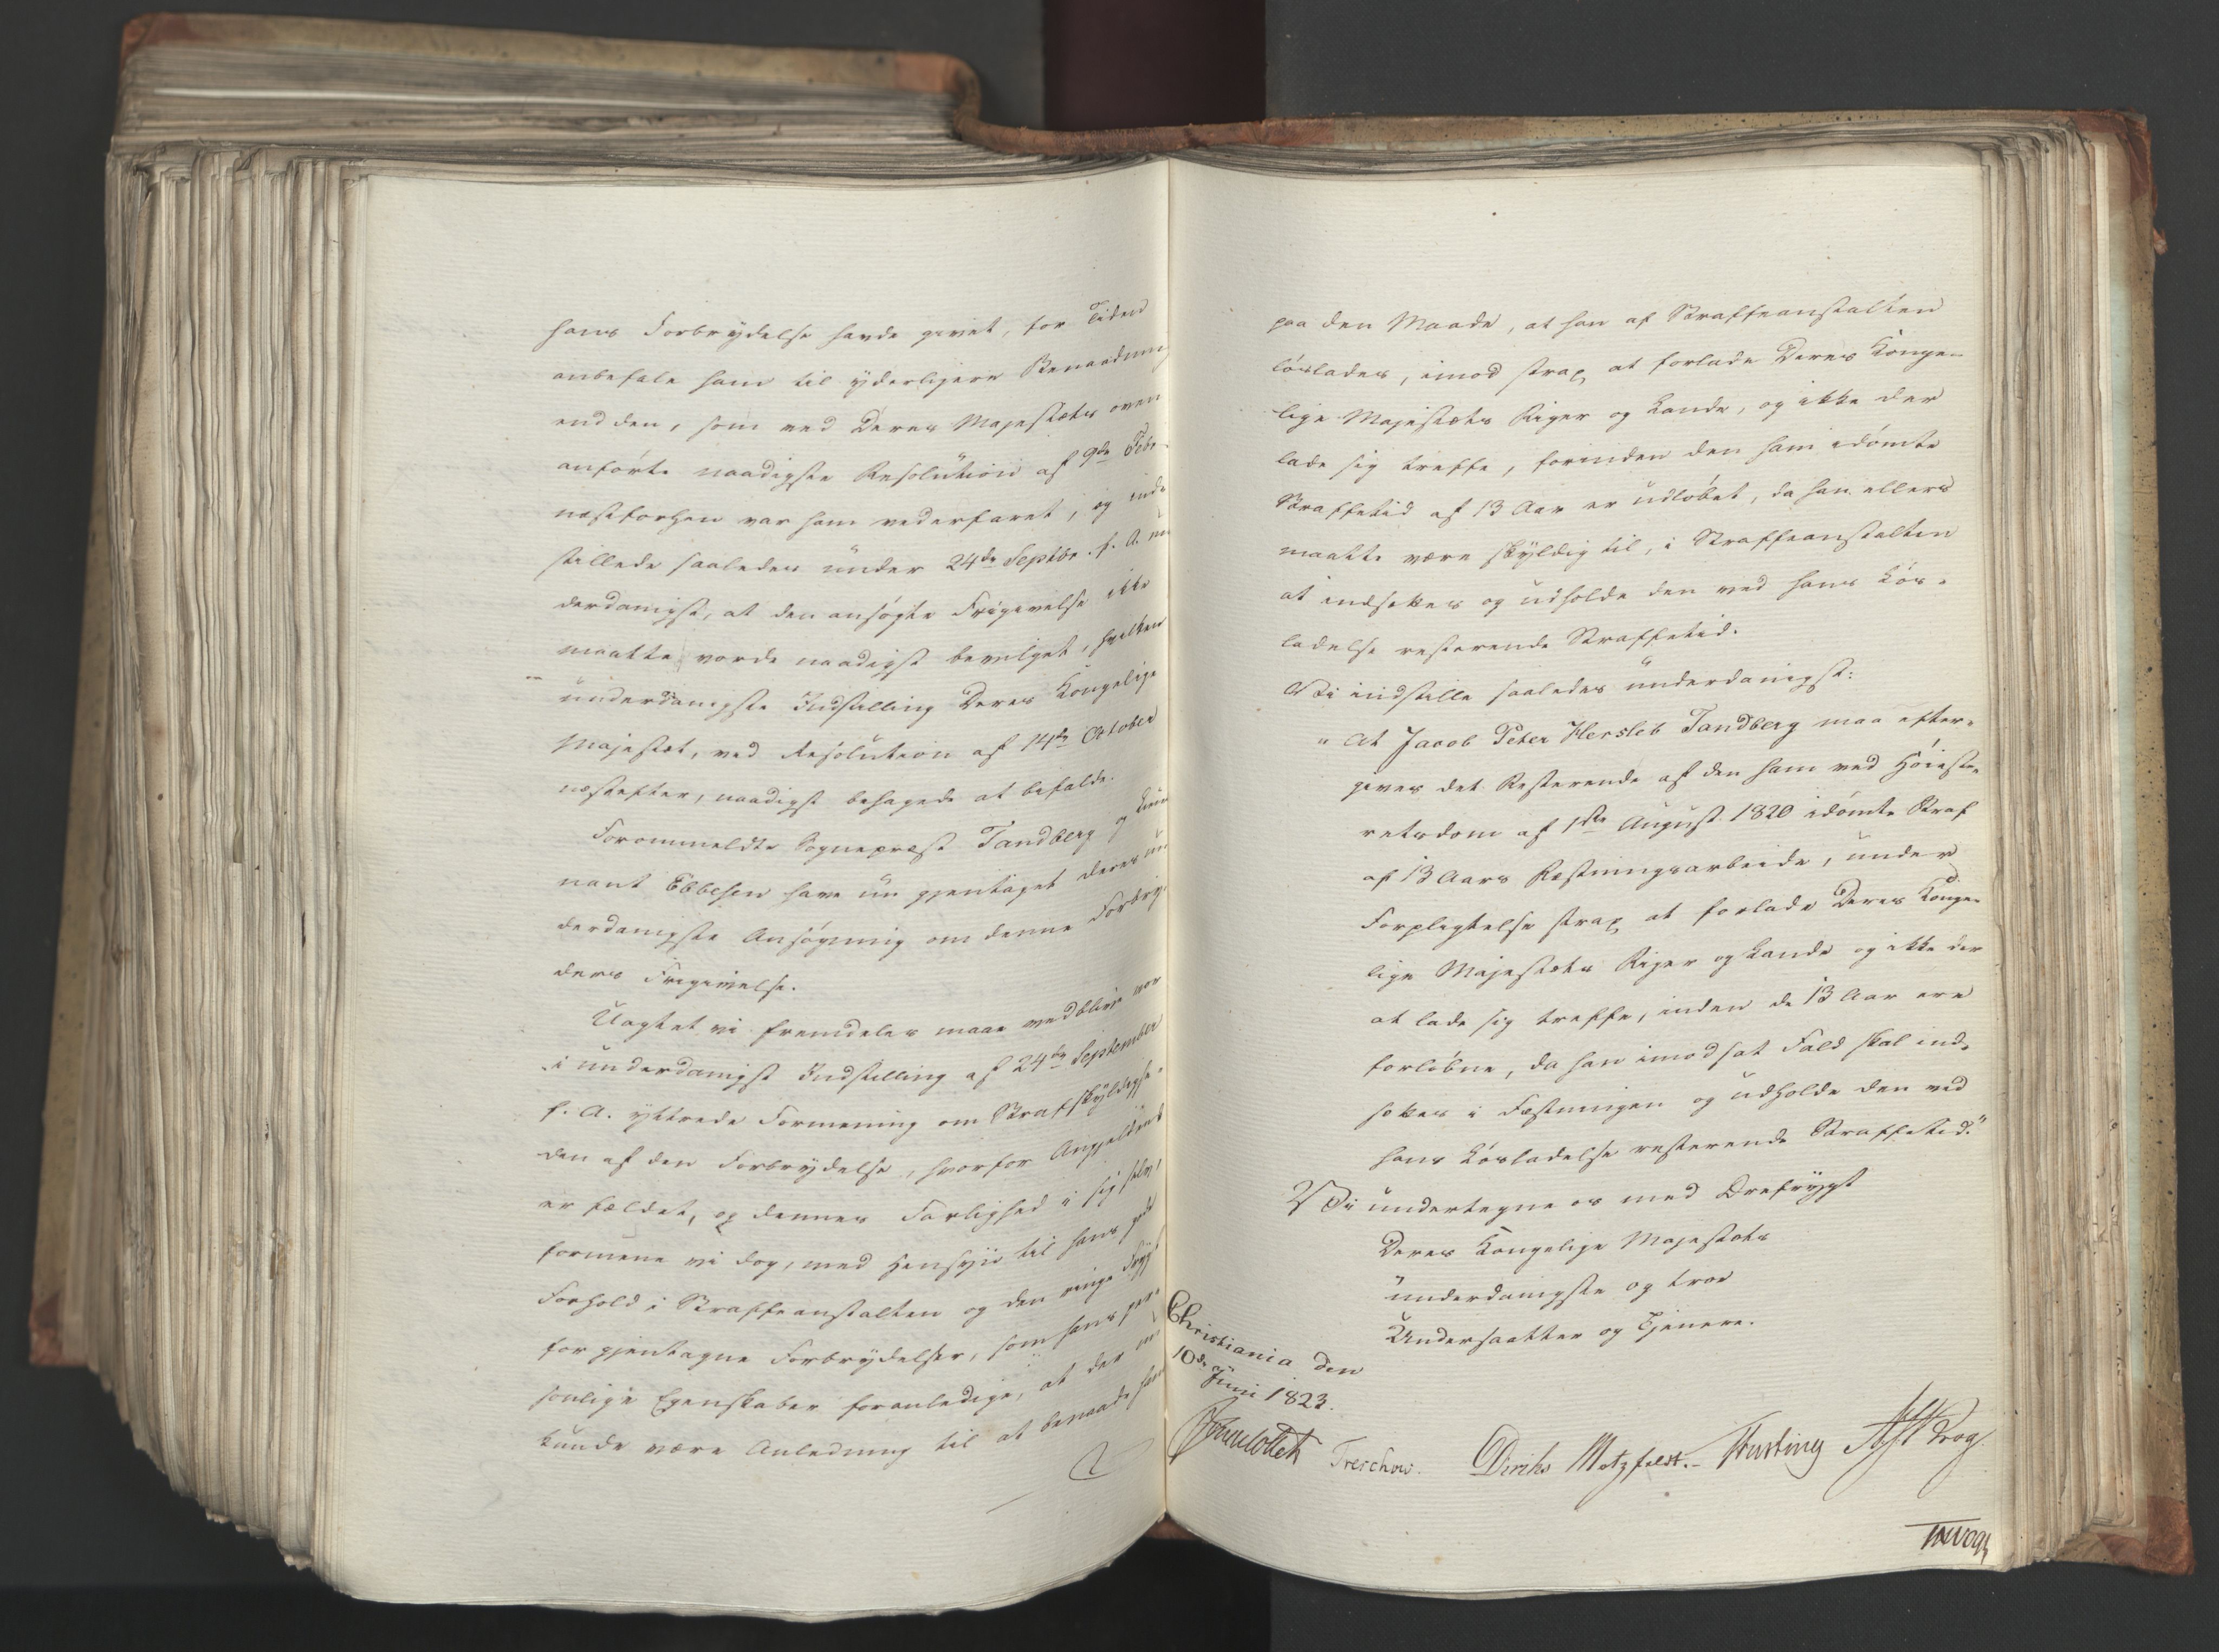 hans Forbrydelse havde givet, for Tiden
anbefale ham til yderligere Benaadning
end den, som ved Deres Majestæts oven
anførte naadigste Resolution af 9de Febr.
næstforhen var ham vederfaret, og ind-
stillede saaledes under 24de Septbr. f. A. un
derdanigst, at den ansøgte Frigivelse ikke
maatte vorde naadigst bevilget, hvilken
underdanigste Indstilling Deres Kongelige
Majestæt, ved Resolution af 14de October
næstefter, naadigst behagede at bifalde.
Forommeldte Sognepræst Tandberg og
nant Ebbesen have nu gjentaget deres un
derdanigste Ansøgning om denne Forbry-
ders Frigivelse.
Uagtet vi fremdeles maae vedblive vor
i underdanigst Indstilling af 24de September
f. A. yttrede Formening om Strafskyldighe-
den af den Forbrydelse, hvorfor Angjeldende
er fældet, og dennes Farlighed i sig selv,
formene vi dog, med Hensyn til hans gode
Forhold i Straffeanstalten og den ringe Frygt
for gjentagne Forbrydelser, som hans per-
sonlige Egenskaber foranledige, at der nu
kunde være Anledning til at benaade ham
paa den Maade, at han af Straffeanstalten
løslades, imod strax at forlade Deres Konge-
lige Majestæts Riger og Lande, og ikke der
lade sig treffe, forinden den ham idømte
Straffetid af 13 Aar er udløbet, da han ellers
maatte være skyldig til, i Straffeanstalten
at indsættes og udholde den ved hans Løs-
ladelse resterende Straffetid.
Vi indstille saaledes underdanigst:
"At Jacob Peter Hersleb Tandberg maa efter-
gives det Resterende af den ham ved Høieste-
retsdom af 1ste August 1820 idømte Straf
af 13 Aars Fæstningsarbeide, under
Forpligtelse strax at forlade Deres Konge-
lige Majestæts Riger og Lande og ikke der
at lade sig treffe, inden de 13 Aar ere
forløbne, da han i modsat Fald skal ind-
sættes i Fæstningen og udholde den ved
hans Løsladelse resterende Straffetid."
Vi undertegne os med Ærefrygt
Deres Kongelige Majestæts
underdanigste og troe
Undersaatter og Tjenere.
Christiania den
10de Juni 1823.
Treschow. Diriks Motzfeldt.